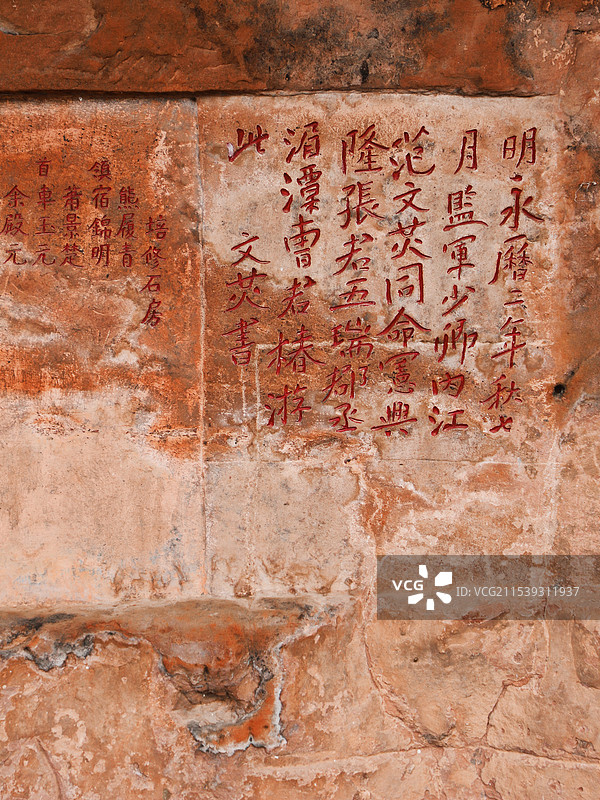 明永曆二年秋七
月監軍少卿内江
范文炗同命憲興
隆張君五瑞郡丞
湄潭曹君椿游
此
文炗書
培修石房
熊履青
領宿錦明
蕭景楚
首車玉元
余殿元
VCG
VCG
ID:VCG211539311937